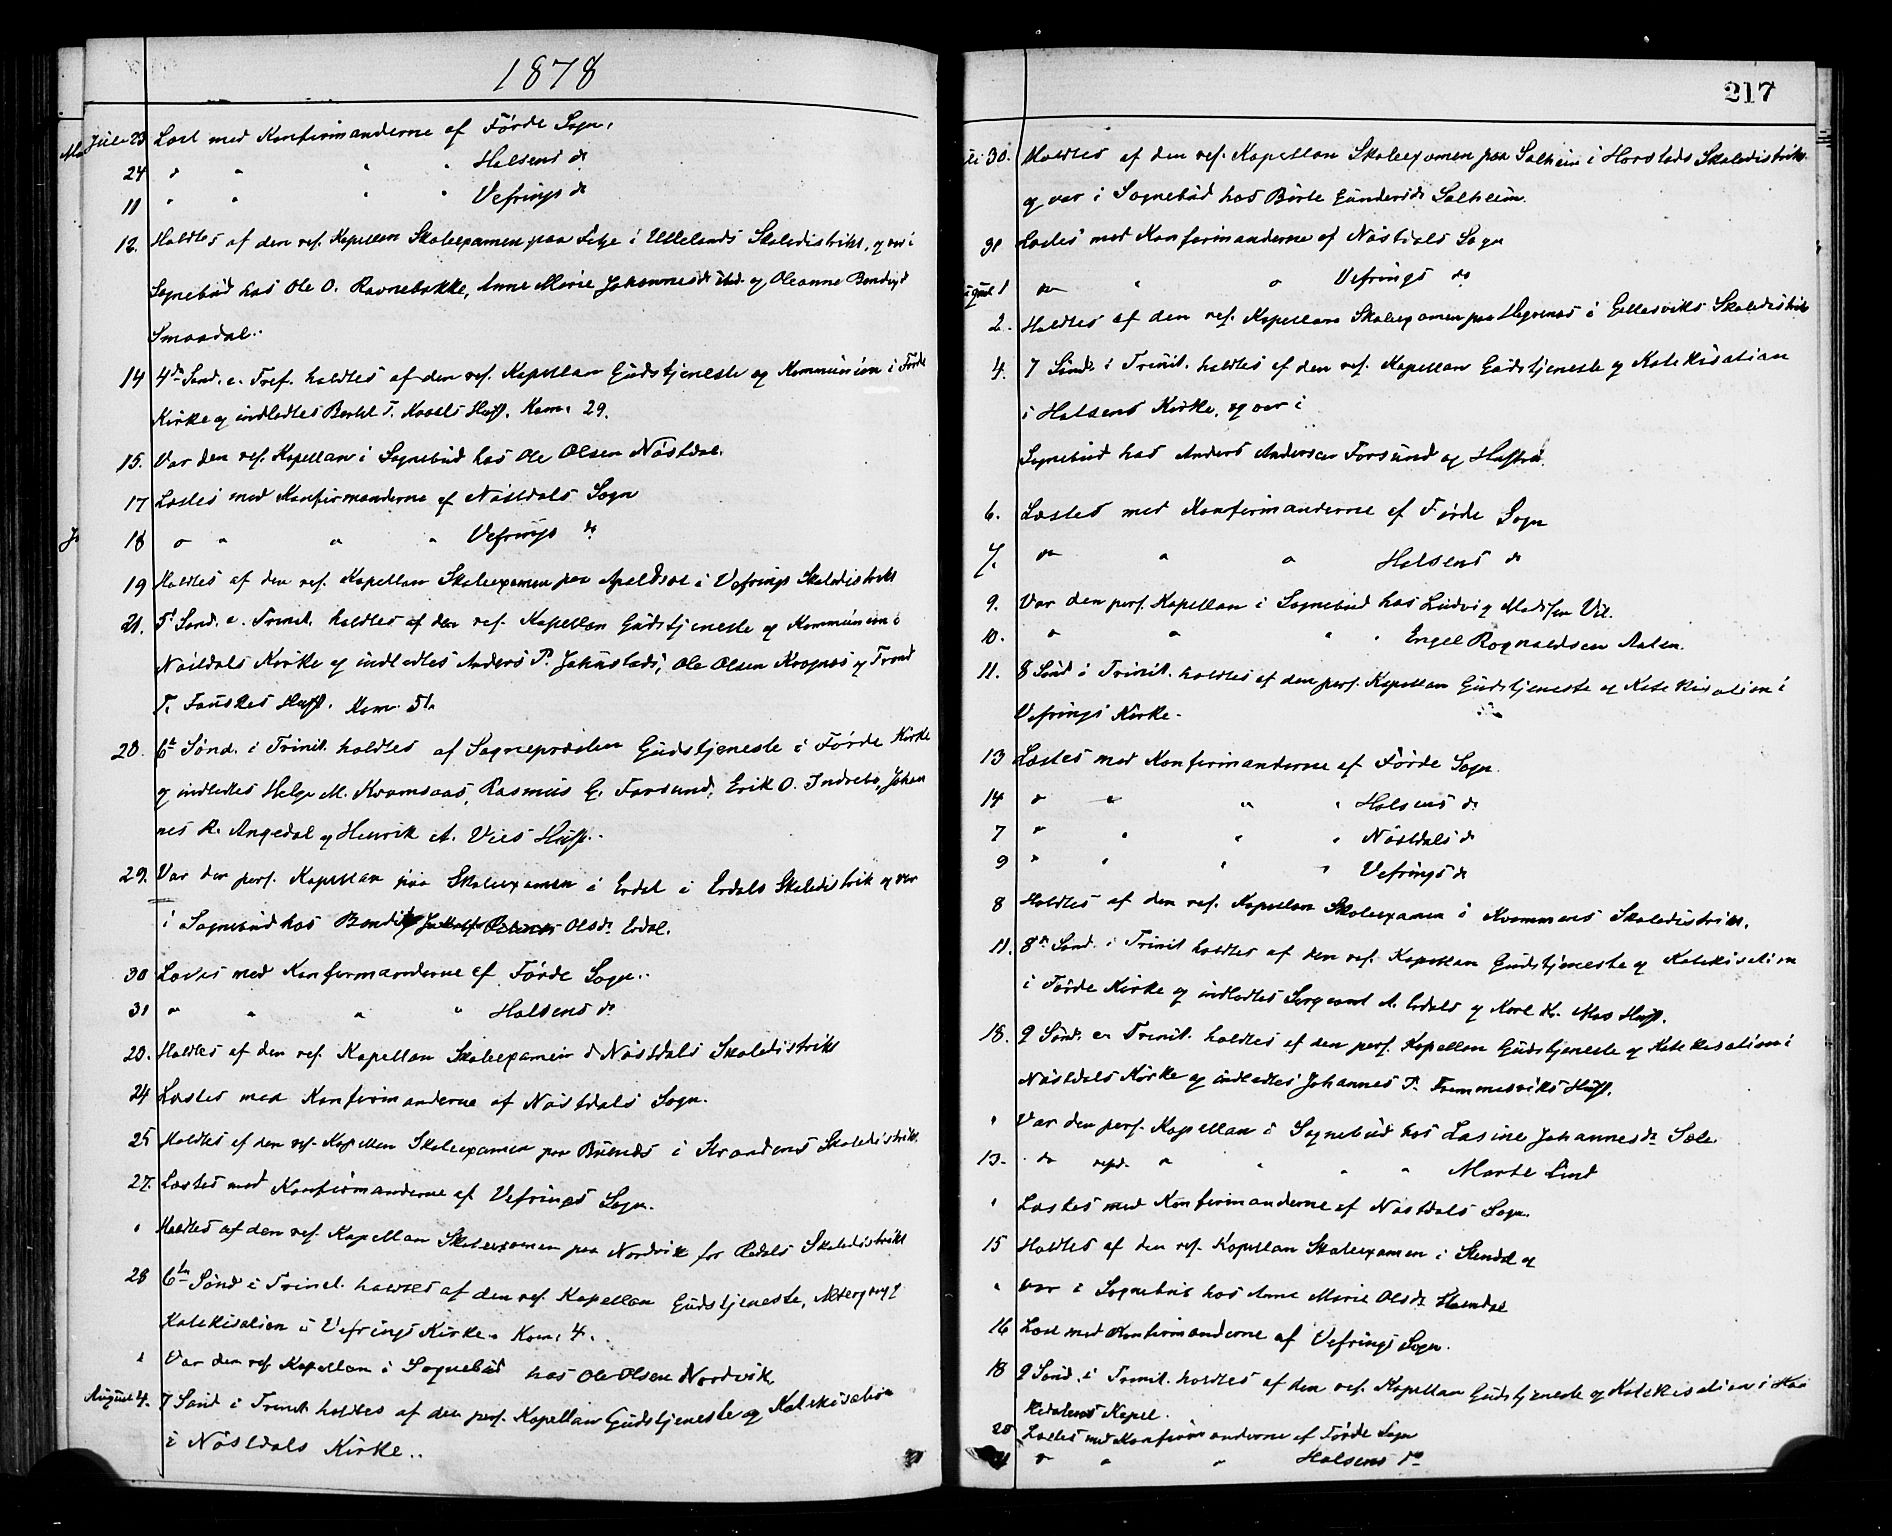 1878
Juli 23 Læst med Konfirmanderne af Förde Sogn.
24 " " " " Holsens do
11 " " " " Vefrings do
12. Holdtes af den res. Kapellan Skoleexamen paa i Ullelands Skoledistrikt, og var i
Sognebud hos Ole O. Ravnebakke, Anne Marie Johannesd. og Oleanne Bendixd
Smaadal.
14 4de Sönd. e. Tref. holdtes af den res. Kapellan Gudstjeneste og Kommunion i Förde
Kirke og indledtes Bertel T. Hust. Kom. 29.
15. Var den res. Kapellan i Sognebud hos Ole Olsen Nöstdal.
17 Læstes med Konfirmanderne af Nöstdals Sogn
18 " " " " Vefrings do
19 Holdtes af den res. Kapellan Skoleexamen paa Apaldset i Vefrings Skoledistrikt
21. 5 Sönd. e. Trinit. holdtes af den res. Kapellan Gudstjeneste og Kommunion i
Nöstdals Kirke og indledtes Anders P. Jonstads, Ole Olsen og Trond
T. Fauskes Hust. Kom. 51.
28. 6te Sönd. i Trinit. holdtes af Sognepræsten Gudstjeneste i Förde Kirke
og indledtes Helge M. Kvamsaas, Rasmus E. Farsund, Erik O. Indrebö, Johan
nes R. Angedal og Henrik A. Vies Hust.
29. Var den pers. Kapellan paa Skoleexamen i Erdal i Erdals Skoledistrik og var
i Sognebud hos Olsdr Erdal.
30 Læstes med Konfirmanderne af Förde Sogn.
31 " " " " Holsens do
23. Holdtes af den res. Kapellan Skoleexamen i Nöstdals Skoledistrikt
24 Læstes med Konfirmanderne af Nöstdals Sogn.
25 Holdtes af den res. Kapellan Skoleexamen paa i Strandens Skoledistrikt.
27. Læstes med Konfirmanderne af Vefrings Sogn.
" Holdtes af den res. Kapellan Skoleexamen paa Nordvik for Redals Skoledistrikt
28 6te Sönd i Trinit. holdtes af den res. Kapellan Gudstjeneste, Altergang og
Katekisation i Vefrings Kirke. Kom. 4.
" Var den res. Kapellan i Sognebud hos Ole Olsen Nordvik.
August 4. 7 Sönd i Trinit. holdtes af den pers. Kapellan Gudstjeneste og Katekisation
i Nöstdals Kirke.
217
30. Holdtes af den res. Kapellan Skoleexamen paa Solheim i Horstads Skoledistrikt.
og var i Sognebud hos Börte Gundersdr Solheim.
31 Læstes med Konfirmanderne af Nöstdals Sogn
August 1 do " " Vefrings do
2. Holdtes af den res. Kapellan Skoleexamen paa Hegrenes i Gellesviks Skoledistrikt
4. 7 Sönd. i Trinit. holdtes af den res. Kapellan Gudstjeneste og Katekisation
i Holsens Kirke, og var i
Sognebud hos Anders Andersen Farsund og Hustru.
6. Læstes med Konfirmanderne af Förde Sogn
7. do " " Holsens do
9. Var den pers. Kapellan i Sognebud hos Ludvig Madsen Vie.
10. " " " " Engel Rognaldsen Aasen.
11. 8 Sönd i Trinit. holdtes af den pers. Kapellan Gudstjeneste og Katekisation i
Vefrings Kirke.
13 Læstes med Konfirmanderne af Förde Sogn
14 " " " " Holsens do
7 " " " " Nöstdals do
9 " " " " Vefrings do
8 Holdtes af den res. Kapellan Skoleexamen i Kvammens Skoledistrikt.
11. 8de Sönd. i Trinit holdtes af den res. Kapellan Gudstjeneste og Katekisation
i Förde Kirke og indledtes Sergeant A. Erdals og Karl K. Mos Hust.
18. 9 Sönd. e. Trinit. holdtes af den pers. Kapellan Gudstjeneste og Katekisation i
Nöstdals Kirke og indledtes Johannes P. Frammesviks Hust.
" Var den pers. Kapellan i Sognebud hos Lasine Johannesdr Sæle
13. do " " " " Marte Lind
" Læstes med Konfirmanderne af Nöstdals Sogn.
15 Holdtes af den res. Kapellan Skoleexamen i og
" var i Sognebud hos Anne Marie Olsdr
16 Læst med Konfirmanderne af Vefrings Sogn.
18 9 Sönd. i Trinit. holdtes af den res. Kapellan Gudstjeneste og Katekisation i Hau
kedalens Kapel.
20 Læstes med Konfirmanderne af Förde Sogn
21 " " " Holsens do